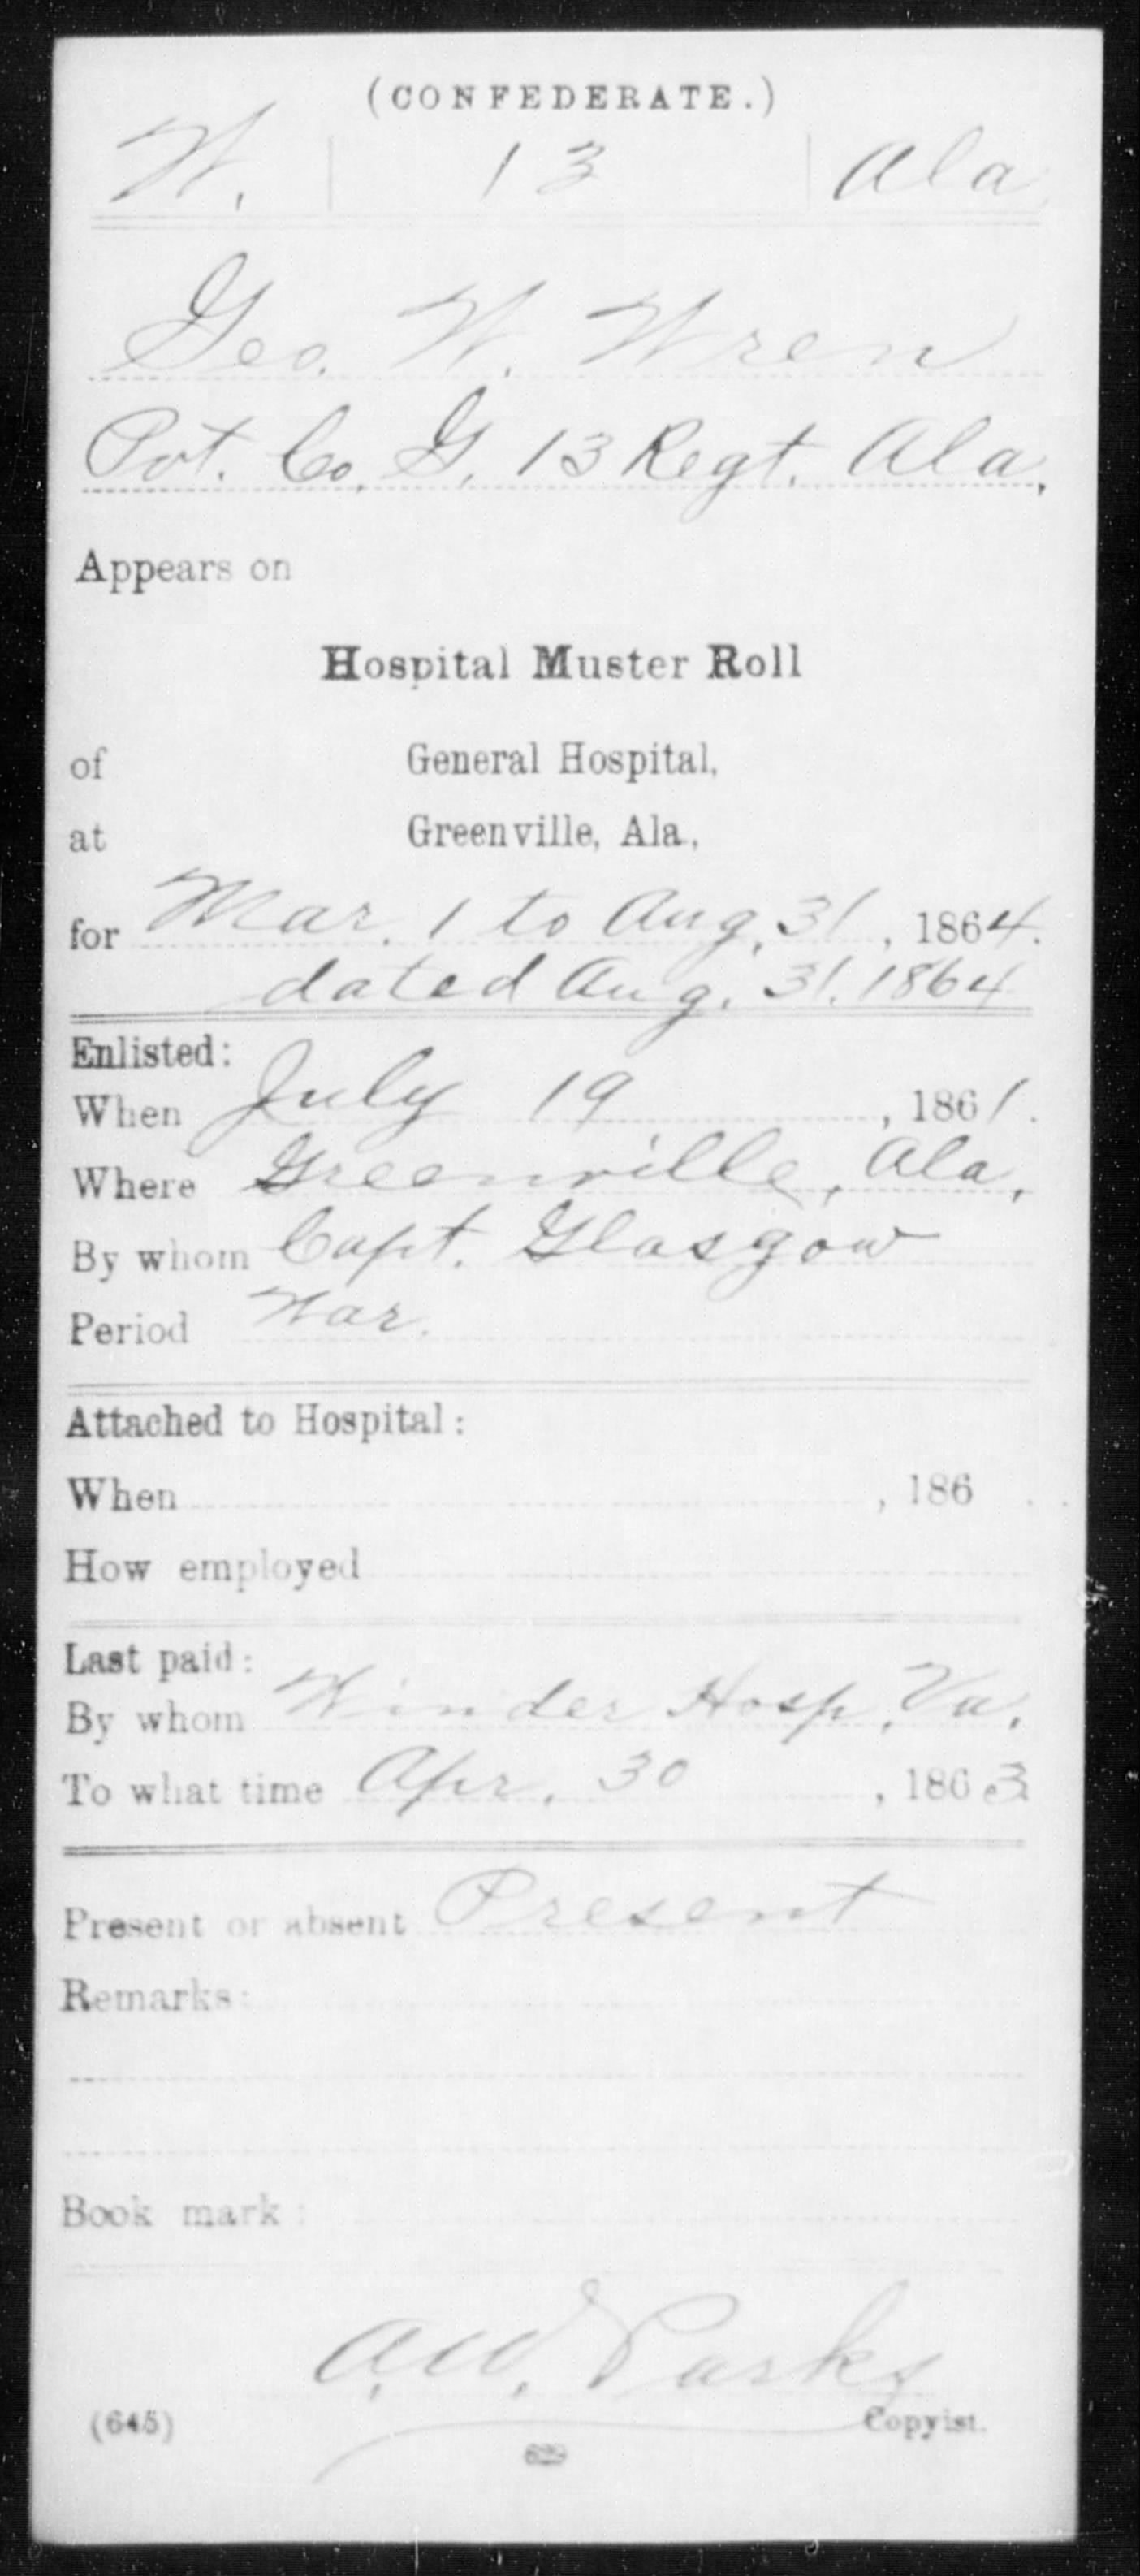 (CONFEDERATE.)
W. 13 Ala
Geo. W. Wren
Pvt. Co. G, 13 Regt. Ala.
Appears on
Hospital Muster Roll
of General Hospital,
at Greenville, Ala.,
for Mar. 1 to Aug. 31, 1864.
dated Aug. 31. 1864
Enlisted:
When July 19, 1861.
Where Greenville, Ala.
By whom Capt. Glasgow
Period War.
Attached to Hospital:
When , 186 .
How employed
Last paid:
By whom Winder Hosp. Va.
To what time Apr. 30, 1863
Present or absent Present
Remarks:
Book mark:
A.W. Parks
(645) Copyist.
629